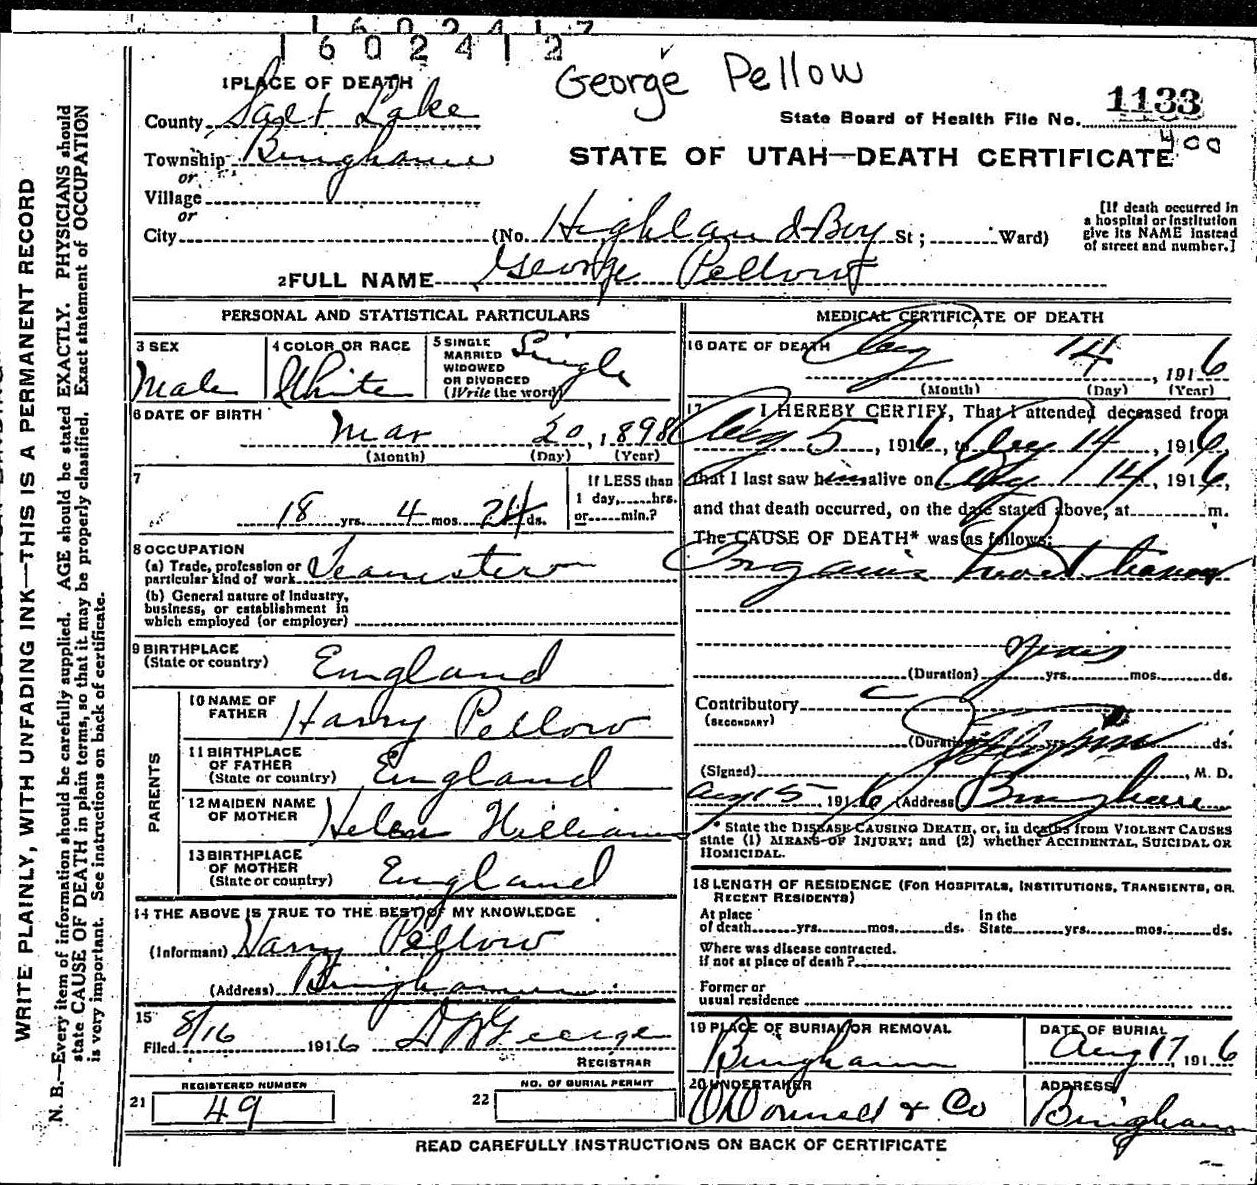 1602412
1602412
George Pellow
1 PLACE OF DEATH
County Salt Lake
State Board of Health File No. 1133
400
Township Bingham
or
STATE OF UTAH—DEATH CERTIFICATE
Village
or
City (No. Highland Boy St; Ward)
[If death occurred in
a hospital or institution
give its NAME instead
of street and number.]
2 FULL NAME George Pellow
PERSONAL AND STATISTICAL PARTICULARS
3 SEX
Male
4 COLOR OR RACE
White
5 SINGLE
MARRIED
WIDOWED
OR DIVORCED
(Write the word)
Single
6 DATE OF BIRTH
Mar 20, 1898
(Month) (Day) (Year)
7
18 yrs. 4 mos. 24 ds.
If LESS than
1 day, hrs.
or min.?
8 OCCUPATION
(a) Trade, profession or
particular kind of work Teamster
(b) General nature of industry,
business, or establishment in
which employed (or employer)
9 BIRTHPLACE
(State or country) England
PARENTS
10 NAME OF
FATHER Harry Pellow
11 BIRTHPLACE
OF FATHER
(State or country) England
12 MAIDEN NAME
OF MOTHER Helen Williams
13 BIRTHPLACE
OF MOTHER
(State or country) England
14 THE ABOVE IS TRUE TO THE BEST OF MY KNOWLEDGE
(Informant) Harry Pellow
(Address) Bingham
15
Filed 8/16 1916 George
REGISTRAR
REGISTERED NUMBER
21 49
NO. OF BURIAL PERMIT
22
MEDICAL CERTIFICATE OF DEATH
16 DATE OF DEATH
Aug 14, 1916
(Month) (Day) (Year)
17 I HEREBY CERTIFY, That I attended deceased from
Aug 5, 1916, to Aug 14, 1916
that I last saw him alive on Aug 14, 1916,
and that death occurred, on the date stated above, at m.
The CAUSE OF DEATH* was as follows:
Organic heart
years
(Duration) yrs. mos. ds.
Contributory
(SECONDARY)
(Duration) yrs. ds.
(Signed) , M. D.
Aug 15, 1916 (Address) Bingham
* State the DISEASE CAUSING DEATH, or, in deaths from VIOLENT CAUSES
state (1) MEANS OF INJURY; and (2) whether ACCIDENTAL, SUICIDAL OR
HOMICIDAL.
18 LENGTH OF RESIDENCE (FOR HOSPITALS, INSTITUTIONS, TRANSIENTS, OR
RECENT RESIDENTS)
At place
of death yrs. mos. ds.
In the
State yrs. mos. ds.
Where was disease contracted.
if not at place of death?
Former or
usual residence
19 PLACE OF BURIAL OR REMOVAL
Bingham
DATE OF BURIAL
Aug 17, 1916
20 UNDERTAKER
O'Donnell & Co
ADDRESS
Bingham
READ CAREFULLY INSTRUCTIONS ON BACK OF CERTIFICATE
WRITE PLAINLY, WITH UNFADING INK—THIS IS A PERMANENT RECORD
N. B.—Every item of information should be carefully supplied. AGE should be stated EXACTLY. PHYSICIANS should
state CAUSE OF DEATH in plain terms, so that it may be properly classified. Exact statement of OCCUPATION
is very important. See instructions on back of certificate.